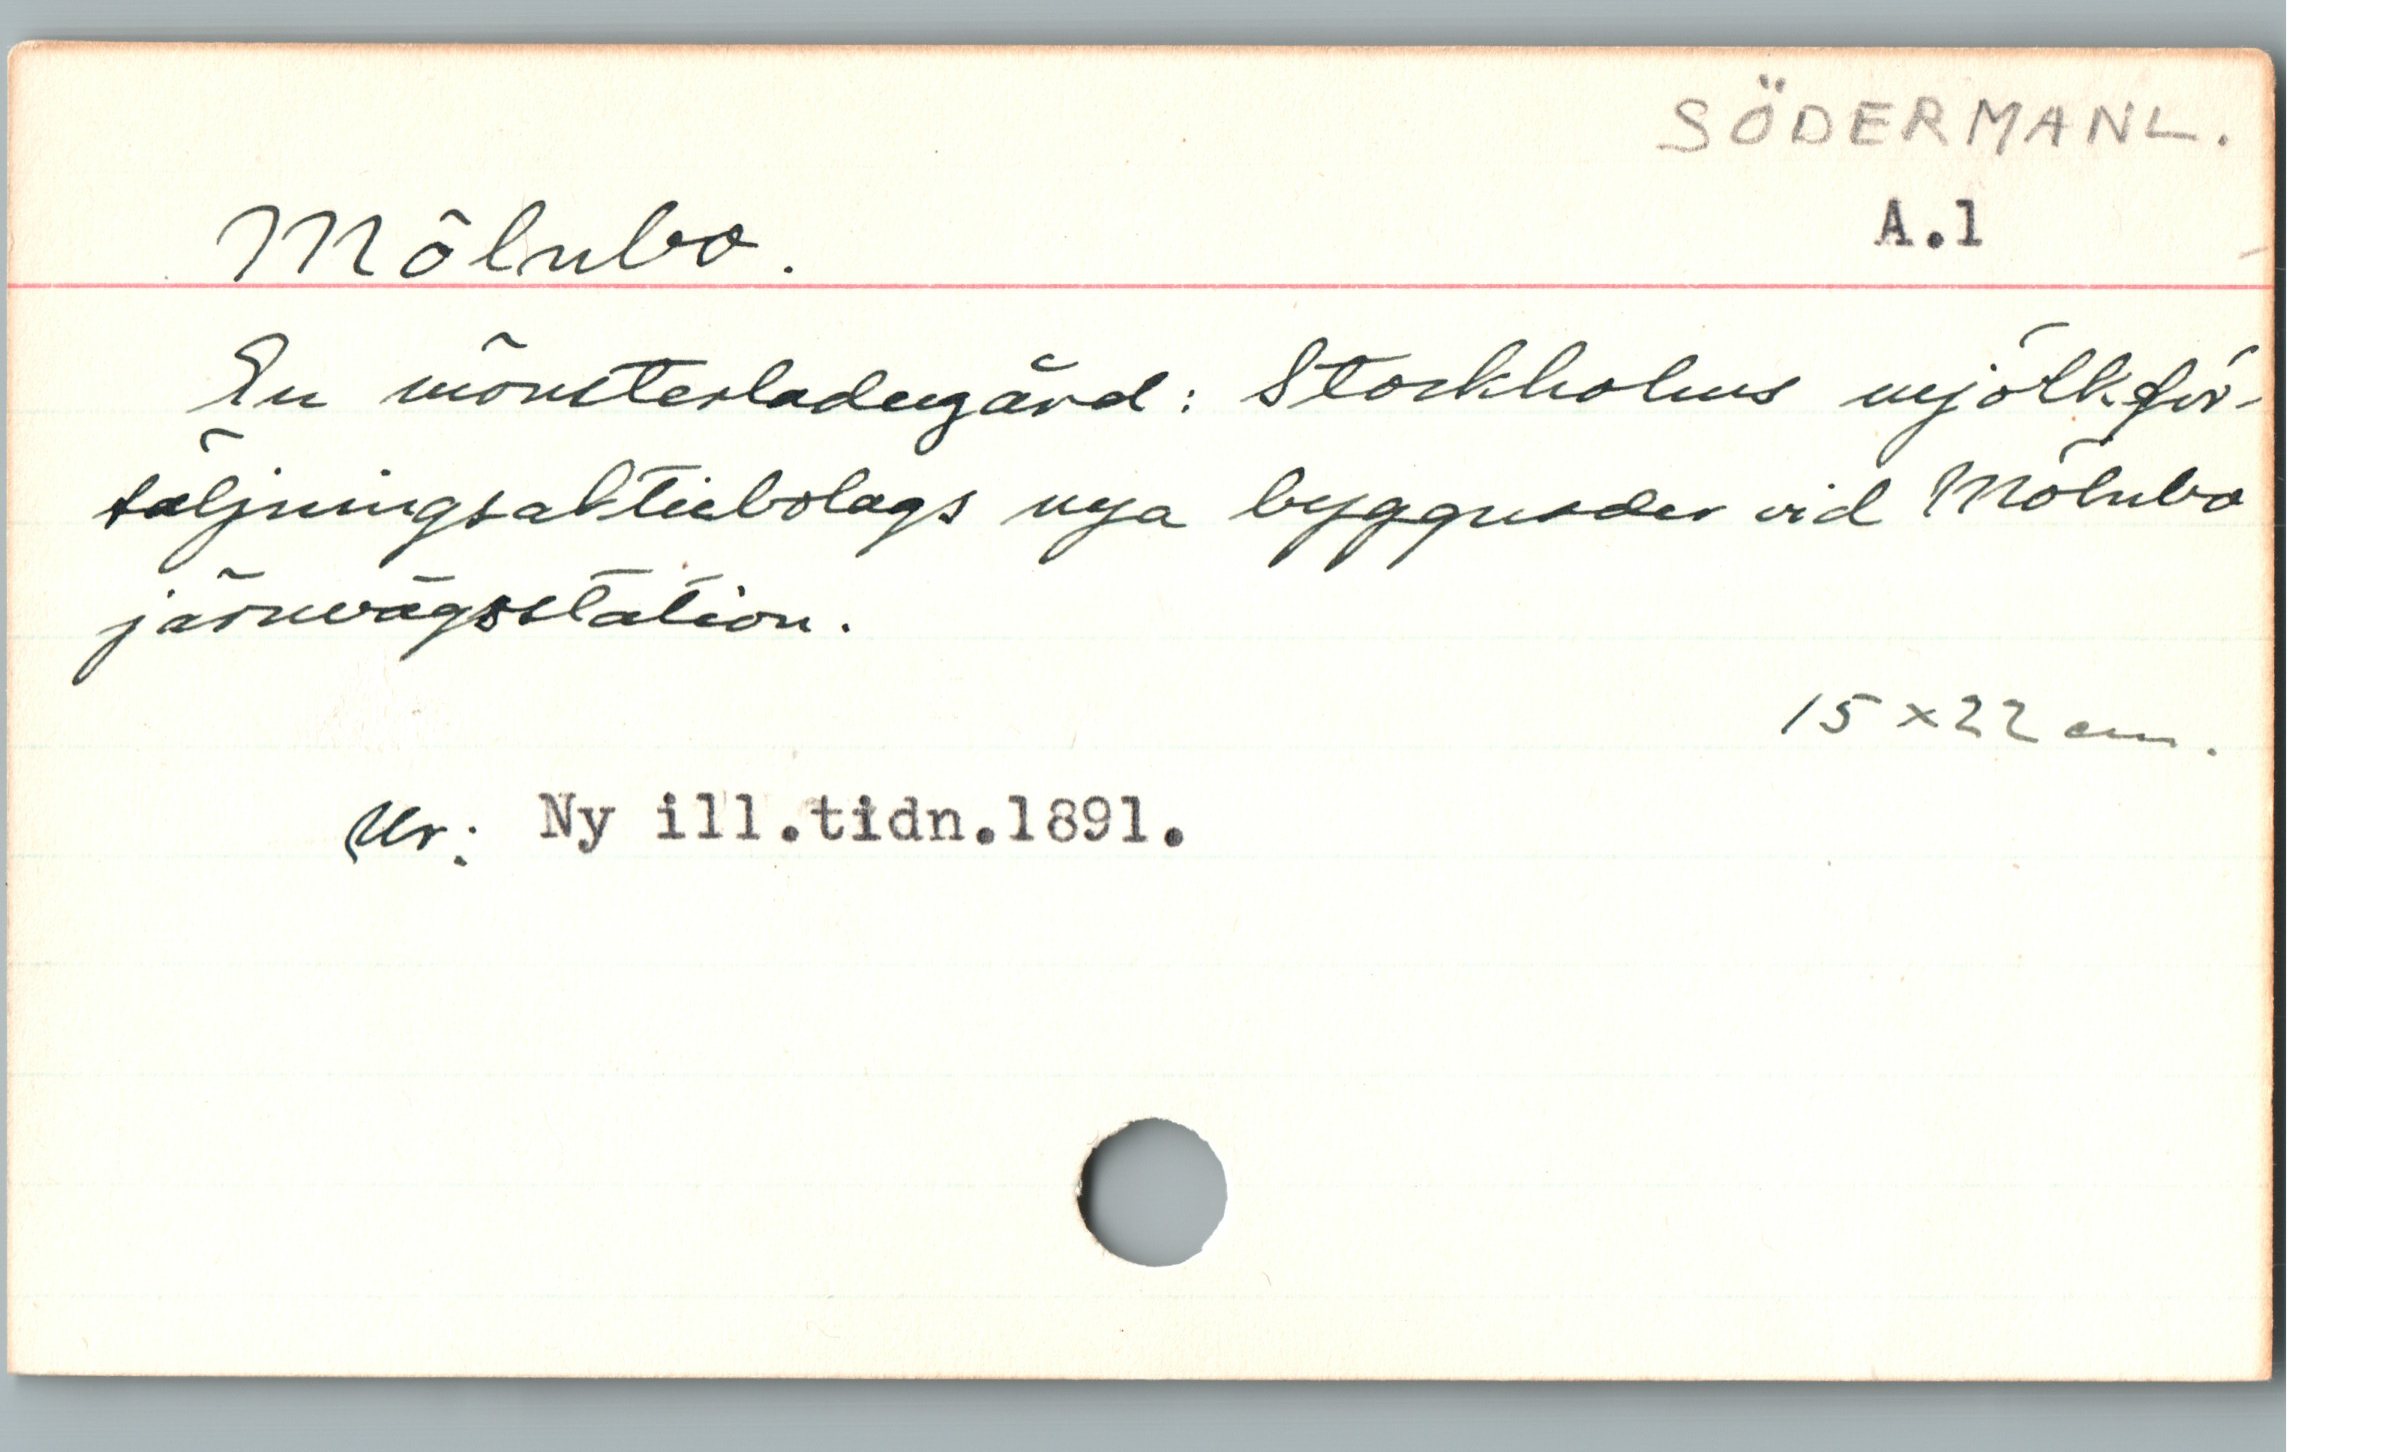 SÖDERMANL.
A.1
Mölnbo.
En mönsterladugård: Stockholms mjölkför-
säljningsaktiebolags nya byggnader vid Mölnbo
järnvägsstation.
15 x 22 cm.
Ur: Ny ill.tidn.1891.